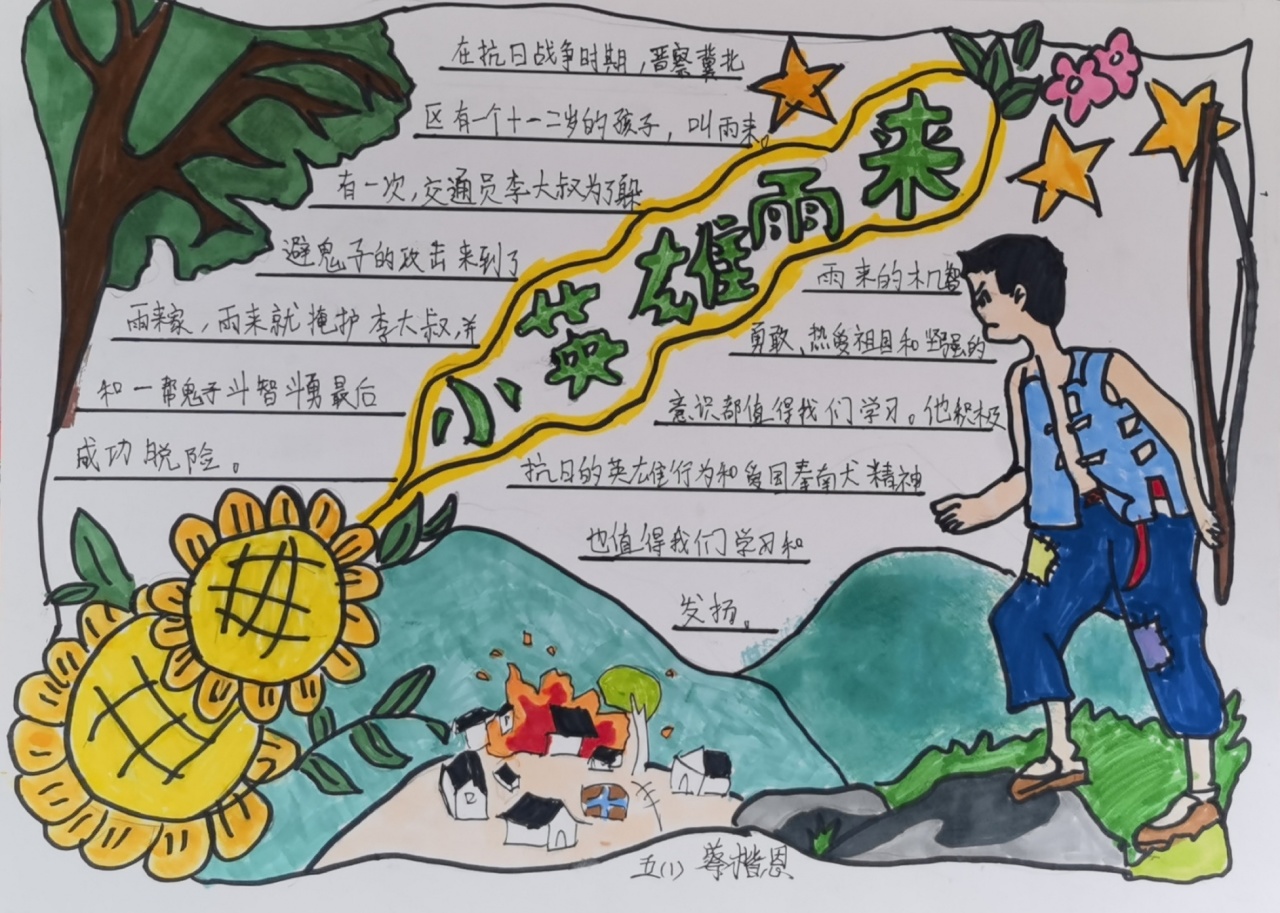 小英雄雨来
在抗日战争时期，晋察冀北
区有一个十一二岁的孩子，叫雨来。
有一次，交通员李大叔为了躲
避鬼子的攻击来到了
雨来家，雨来就掩护李大叔，并
和一帮鬼子斗智斗勇最后
成功脱险。
雨来的机智
勇敢、热爱祖国和坚强的
意识都值得我们学习。他积极
抗日的英雄行为和爱国奉南犬精神
也值得我们学习和
发扬。
五(1) 楷恩